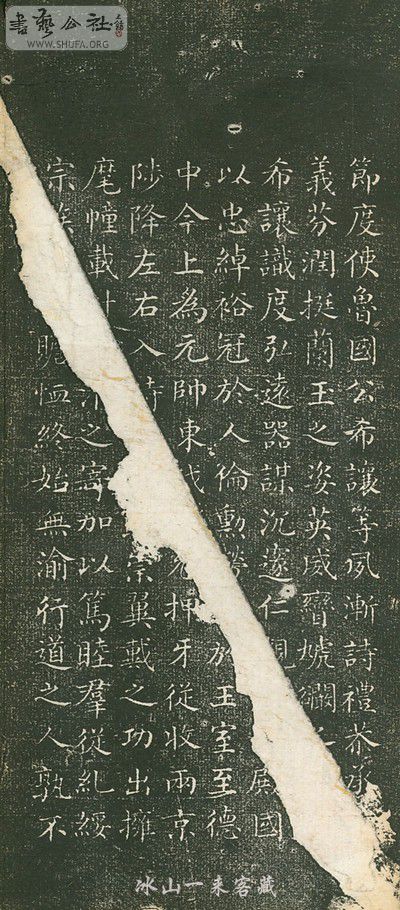 書藝公社
WWW.SHUFA.ORG
節度使魯國公希讓等夙漸詩禮恭承
義芬潤挺蘭玉之姿英威奮虓闞
希讓識度弘遠器謀沉邃仁 展國
以忠綽裕冠於人倫勳 於王室至德
中今上為元帥東 押牙從收兩京
陟降左右入 宗翼戴之功出擁
麾幢載 之寄加以篤睦羣從糺綏
宗 贍恤終始無渝行道之人孰不
冰山一來客藏